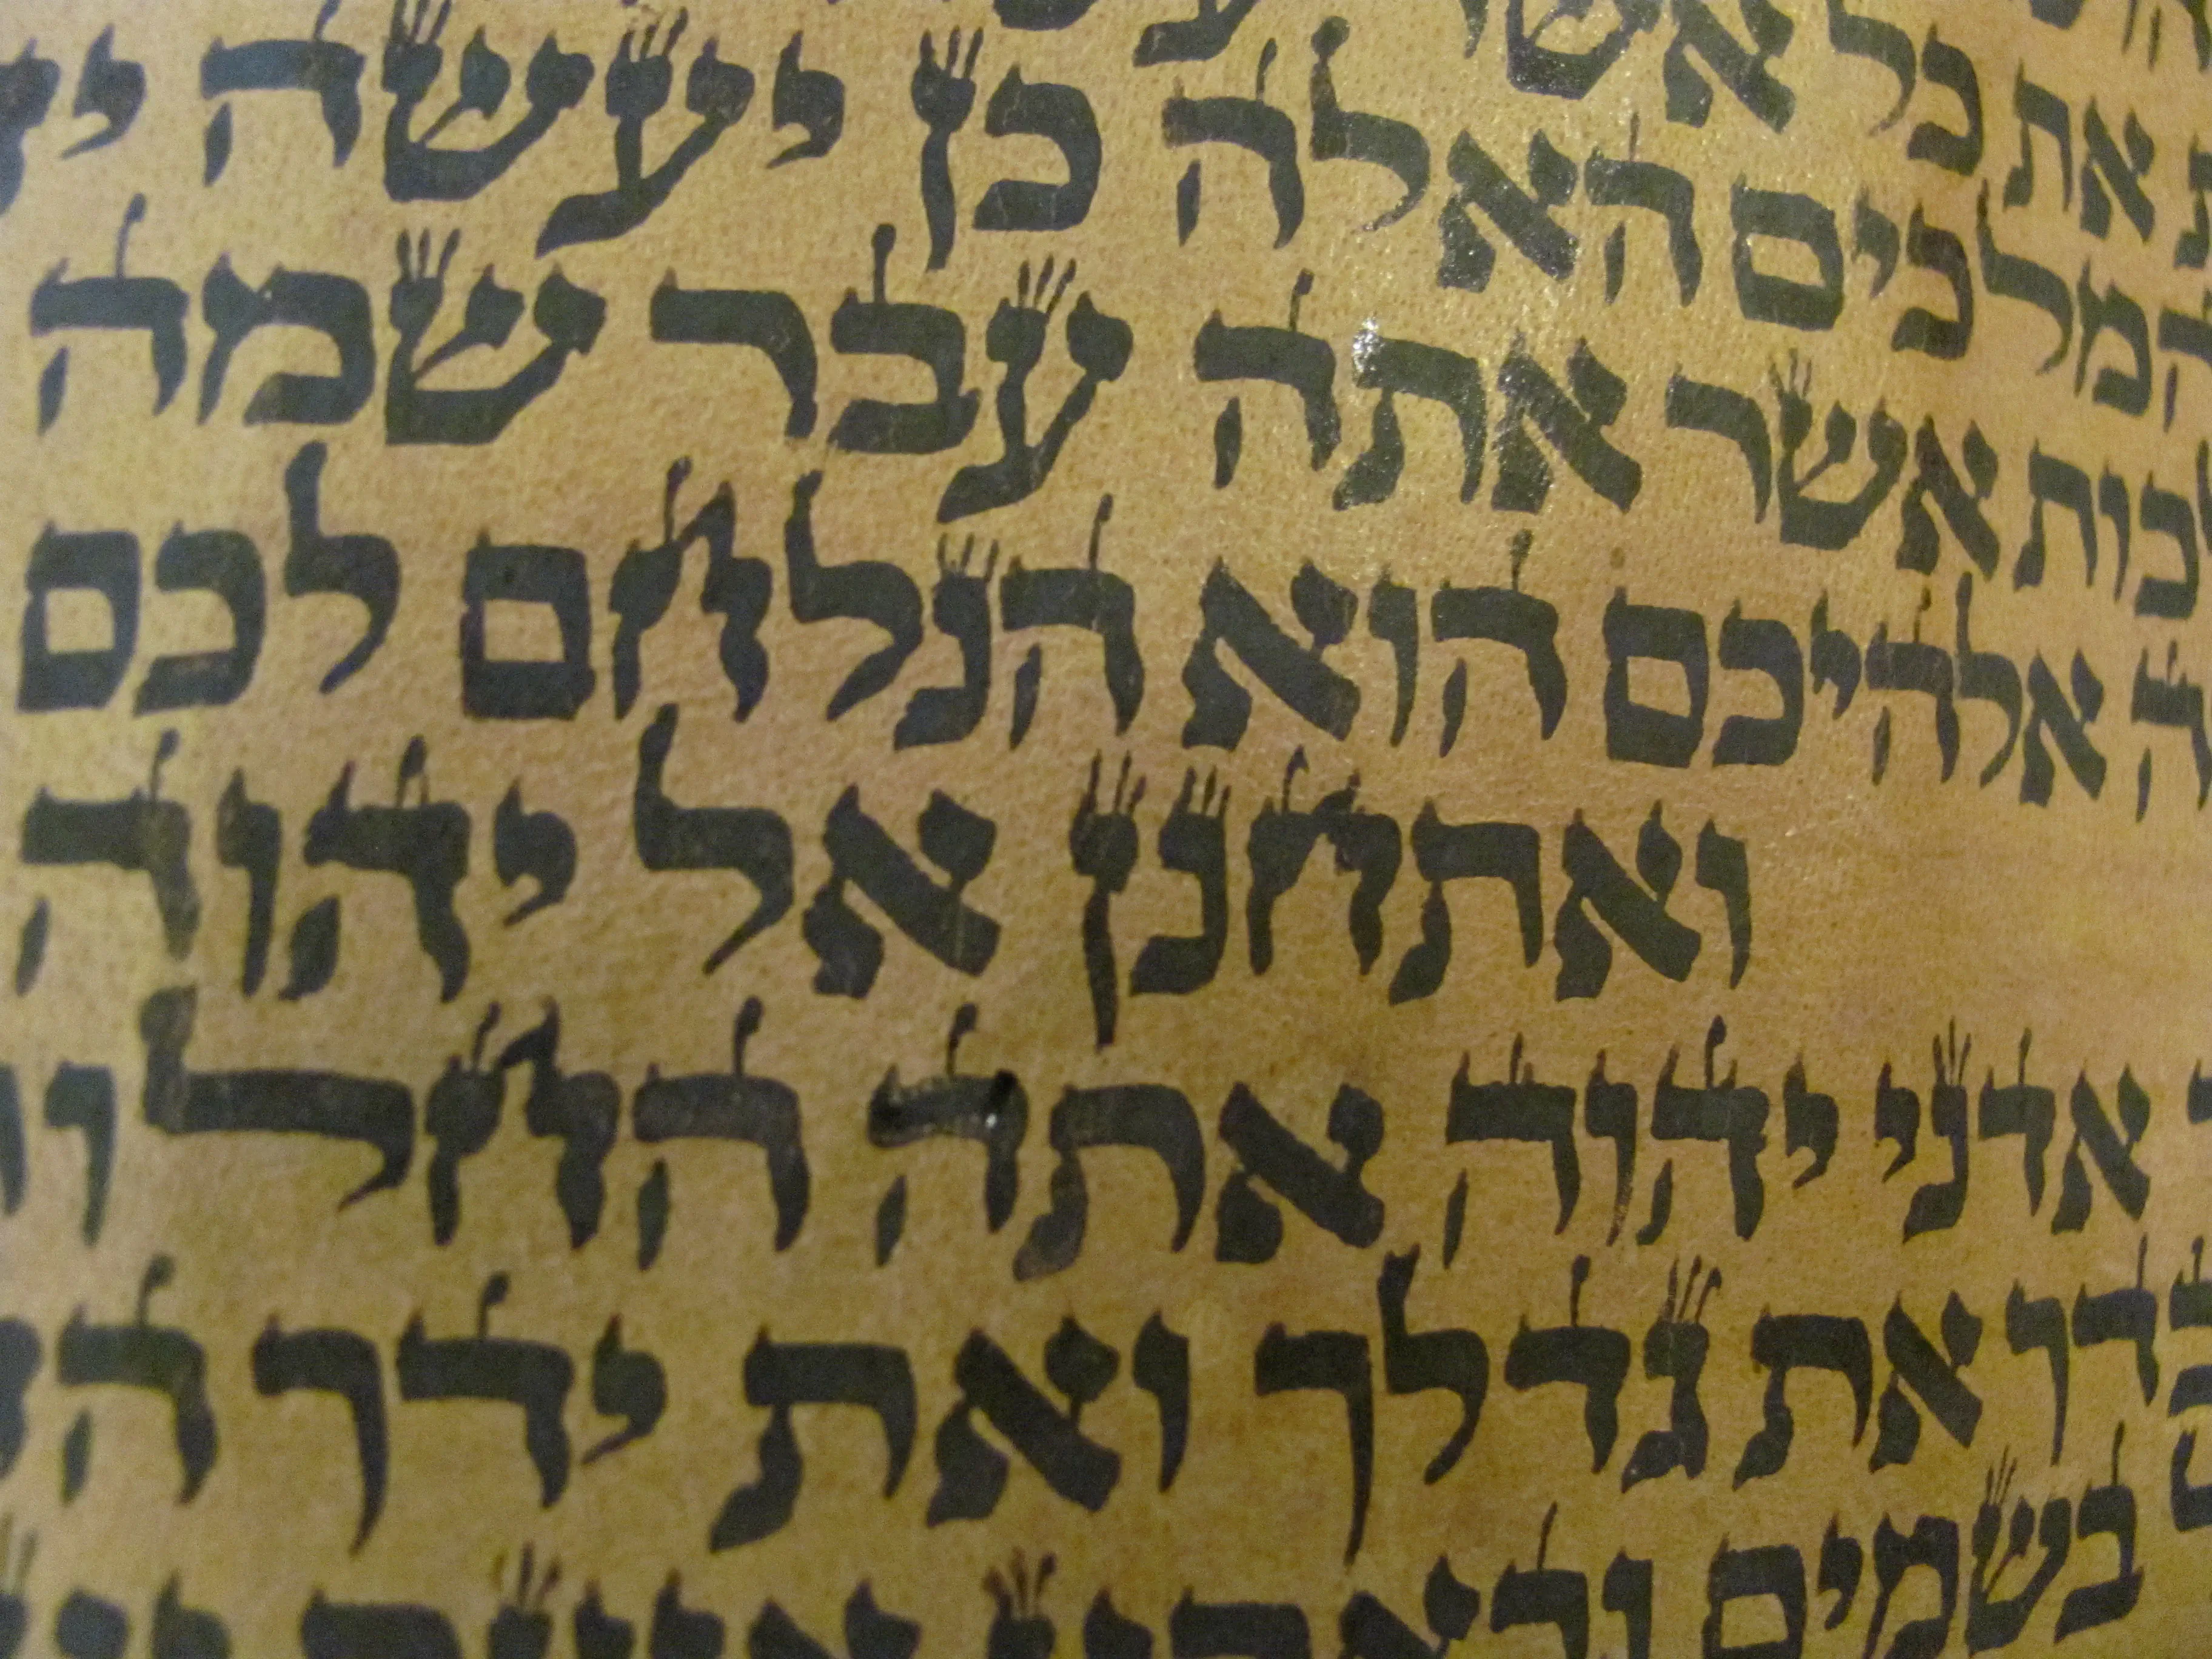 את כל אשר
המלכים האלה כן יעשה
אשר אתה עבר שמה
אלהיכם הוא הנלחם לכם
ואתחנן אל יהוה
אדני יהוה אתה החל
את גדלך ואת ידך
בשמים